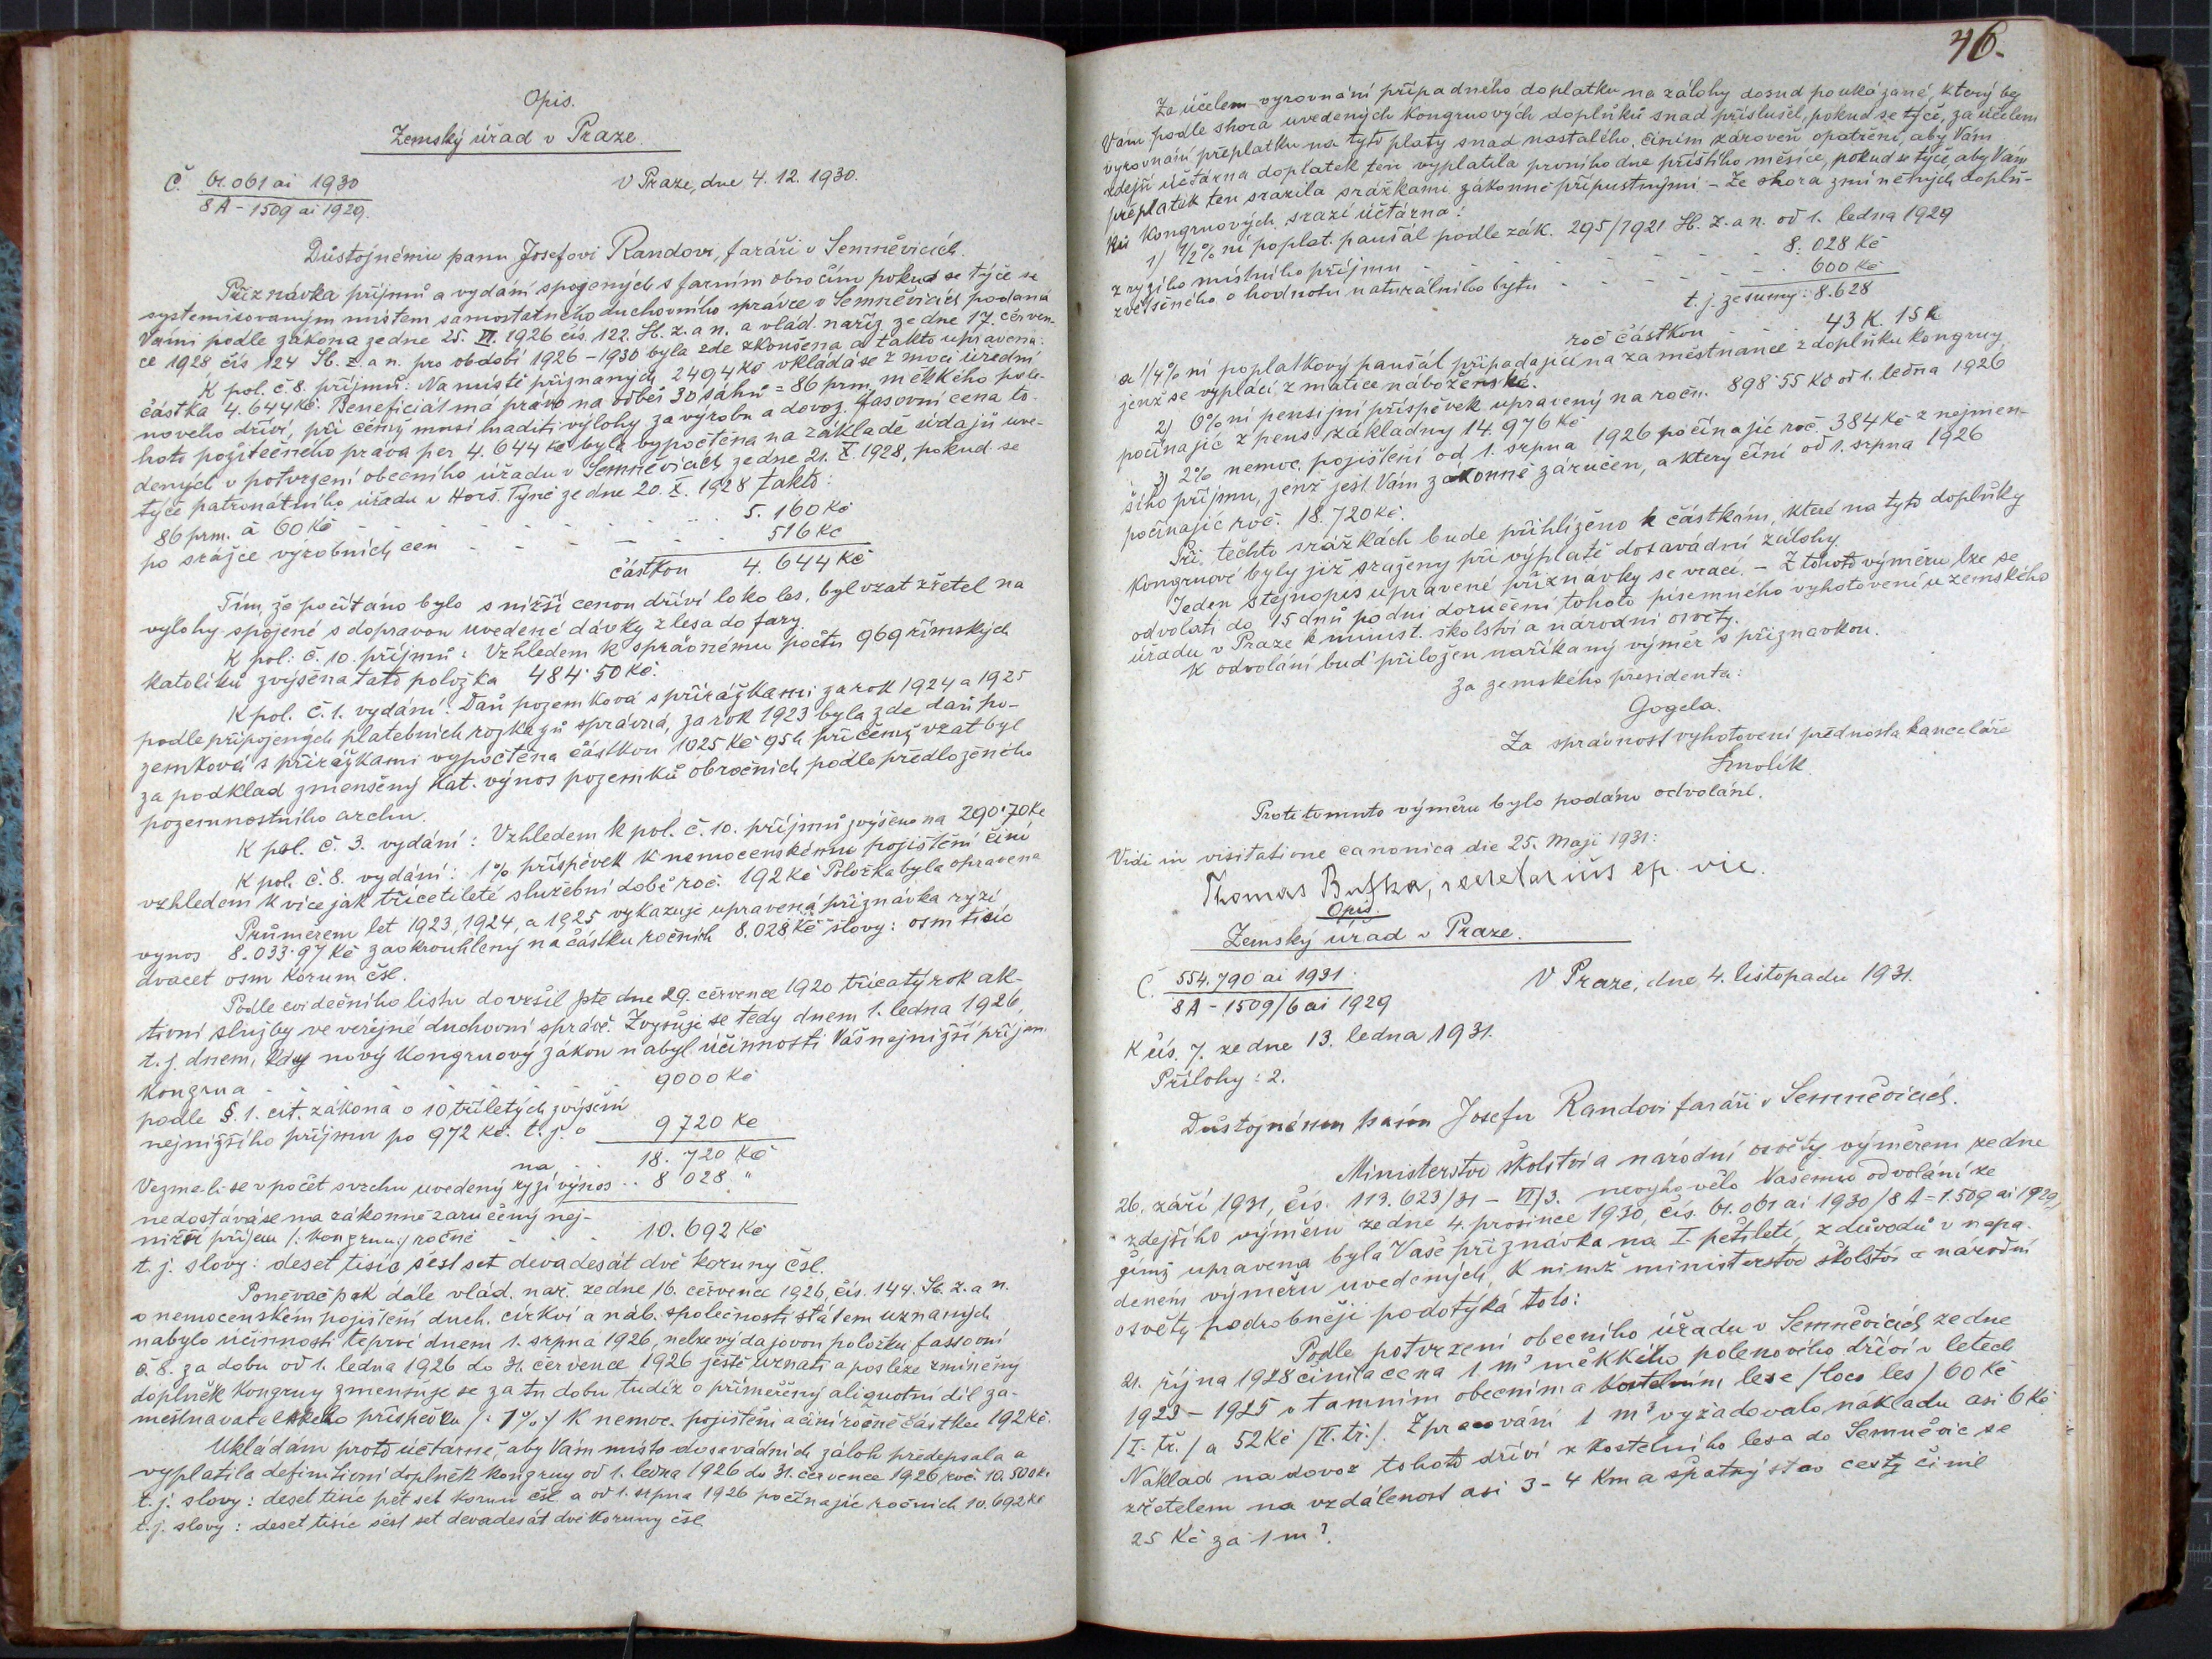 Opis.
Zemský úřad v Praze.
Č. 61.061 ai 1930
8A - 1509 ai 1929.
V Praze, dne 4. 12. 1930.
Důstojnému panu Josefovi Randovi, faráři v Semněvicích.
Přiznávka příjmů a vydání spojených s farním obročím pokud se týče se
systemisovaným místem samostatného duchovního správce v Semněvicích podaná
Vámi podle zákona ze dne 25. VI. 1926 čís. 122. Sb. z. a n. a vlád. naříz. ze dne 17. červen-
ce 1928 čís 124 Sb. z. a n. pro období 1926-1930 byla zde zkoušena a takto upravena:
K pol. č. 8. příjmů: Na místě přiznaných 2494 Kč vkládá se z moci úřední
částka 4.644 Kč. Beneficiát má právo na odběr 30 sáhů = 86 prm. měkkého pole-
nového dříví, při čemž musí hraditi výlohy za výrobu a dovoz. Fasovní cena to-
hoto požitečného práva per 4.644 Kč byla vypočtěna na základě údajů uve-
dených v potvrzení obecního úřadu v Semněvicích ze dne 21. X. 1928, pokud se
týče patronátního úřadu v Horš. Týně ze dne 20. X. 1928 takto:
86 prm. à 60 Kč - - - - - - - - 5.160 Kč
po srážce výrobních cen - - - - - - 516 Kč
částkou 4.644 Kč
Tím, že počítáno bylo s nižší cenou dříví loko les, byl vzat zřetel na
výlohy spojené s dopravou uvedené dávky z lesa do fary.
K pol: č. 10. příjmů: Vzhledem k správnému počtu 969 římských
katolíků zvýšena tato položka 484·50 Kč.
K pol. č. 1. vydání: Daň pozemková s přirážkami za rok 1924 a 1925
podle připojených platebních rozkazů správná, za rok 1923 byla zde daň po-
zemková s přirážkami vypočtěna částkou 1025 Kč 95 h při čemž vzat byl
za podklad zmenšený kat. výnos pozemků obročních podle předloženého
pozemnostního archu.
K pol. č. 3. vydání: Vzhledem k pol. č. 10. příjmů zvýšeno na 290·70 Kč
K pol. č. 8. vydání: 1% příspěvek k nemocenskému pojištění činí
vzhledem k více jak třicetileté služební době roč. 192 Kč Položka byla opravena
Průměrem let 1923, 1924, a 1925 vykazuje upravená přiznávka ryzí
výnos 8.033·97 Kč zaokrouhlený na částku ročních 8.028 Kč slovy: osm tisíc
dvacet osm korum čsl.
Podle evidečního listu dovršil jste dne 29. července 1920 třicátý rok ak-
tivní služby ve veřejné duchovní správě. Zvyšuje se tedy dnem 1. ledna 1926,
t. j. dnem, kdy nový kongruový zákon nabyl účinnosti Váš nejnižší příjem
kongrua - - - - - - 9000 Kč
podle §. 1. cit. zákona o 10 tříletých zvýšení
nejnižšího příjmu po 972 Kč. t. j. o 9720 Kč
na 18.720 Kč
Vezme-li se v počet svrchu uvedený ryzí výnos .. 8 028 "
nedostává se na zákonně zaručěný nej-
nižší příjem /: kongruu:/ ročně - - - 10.692 Kč
t. j. slovy: deset tisíc šest set devadesát dvě koruny čsl.
Poněvač pak dále vlád. nař. ze dne 16. července 1926, čís. 144. Sb. z. a n.
o nemocenském pojištění duch. církví a náb. společností státem uznaných
nabylo účinnosti teprve dnem 1. srpna 1926, nelze výdajovou položku fassovní
č. 8. za dobu od 1. ledna 1926 do 31. července 1926 ještě uznati a posléze zmíněný
doplněk kongruy zmenšuje se za tu dobu tudíž o přiměřený aliquotní díl za-
městnavatelského příspěvku /: 1% :/ k nemoc. pojištění a činí ročně částku 192 Kč.
Ukládám proto účtárně aby Vám místo dosavádních záloh předepsala a
vyplatila definitivní doplněk kongruy od 1. ledna 1926 do 31. července 1926 roč. 10.500 Kč
t. j. slovy: deset tisíc pět set korun čsl. a od 1. srpna 1926 počínajíc ročních 10.692 Kč
t. j. slovy: deset tisíc šest set devadesát dvě koruny čsl
46.
Za účelem vyrovnání případného doplatku na zálohy dosud poukázané, který by
Vám podle shora uvedených kongruových doplňků snad příslušel, pokud se týče, za účelem
vyrovnání přeplatku na tyto platy snad nastalého, činím zároveň opatření, aby Vám
zdejší účtárna doplatek ten vyplatila prvního dne příštího měsíce, pokud se týče, aby Vám
přeplatek ten srazila srážkami zákonně přípustnými - Ze shora zmíněných doplň-
ků kongruových srazí účtárna:
1) 1/2% ní poplat. paušál podle zák. 295/1921 Sb. z. a n. od 1. ledna 1929
z ryzího místního příjmu - - - - - - 8.028 Kč
zvětšeného o hodnotu naturálního bytu - - - - - 600 Kč
t. j. ze sumy: 8.628
roč částkou - - - 43 K. 15 h
a 1/4% ní poplatkový paušál připadající na zaměstnance z doplňku kongruy,
jenž se vyplácí z matice náboženské.
2) 6% ní pensijní příspěvek upravený na ročn. 898·55 Kč od 1. ledna 1926
počínajíc z pens. základny 14.976 Kč
3) 2% nemoc. pojištění od 1. srpna 1926 počínajíc roč. 384 Kč z nejmen-
šího příjmu, jenž jest Vám zákonně zaručen, a který činí od 1. srpna 1926
počínajíc roč. 18.720 Kč.
Při těchto srážkách bude přihlíženo k částkám, které na tyto doplňky
kongruové byly již sraženy při výplatě dosavádní zálohy.
Jeden stejnopis upravené přiznávky se vrací. - Z tohoto výměru lze se
odvolati do 15 dnů po dni doručení tohoto písemného vyhotovení u zemského
úřadu v Praze k minist. školství a národní osvěty.
K odvolání buď přiložen naříkaný výměr s přiznávkou.
Za zemského presidenta:
Gogela.
Za správnost vyhotovení přednosta kanceláře
Smolík.
Proti tomuto výměru bylo podáno odvolání.
Vidi in visitatione canonica die 25. Maji 1931:
Thomas , secretarius ep. vic.
Opis.
Zemský úřad v Praze.
Č. 554.790 ai 1931.
8A - 1509/6 ai 1929
V Praze, dne 4. listopadu 1931.
K čís. 7. ze dne 13. ledna 1931.
Přílohy: 2.
Důstojnému panu Josefu Randovi faráři v Semněvicích.
Ministerstvo školství a národní osvěty výměrem ze dne
26. září 1931, čís. 113.623/31 - VI/3. nevyhovělo Vašemu odvolání ze
zdejšího výměru ze dne 4. prosince 1930, čís. 61.061 ai 1930/8A-1.509 ai 1929,
jímž upravena byla Vaše přiznávka na I pětiletí, z důvodů v napa-
deném výměru uvedených, k nimž ministerstvo školství a národní
osvěty podrobněji podotýká toto:
Podle potvrzení obecního úřadu v Semněvicích ze dne
21. října 1928 činila cena 1 m³ měkkého polenového dříví v letech
1923-1925 v tamním obecním a kostelním lese /loco les/ 60 Kč
/I. tř./ a 52 Kč /II. tř./. Zpracování 1 m³ vyžadovalo nákladu asi 6 Kč
Náklad na dovoz tohoto dříví z kostelního lesa do Semněvic se
zřetelem na vzdálenost asi 3-4 Km a špatný stav cesty činil
25 Kč za 1 m³.